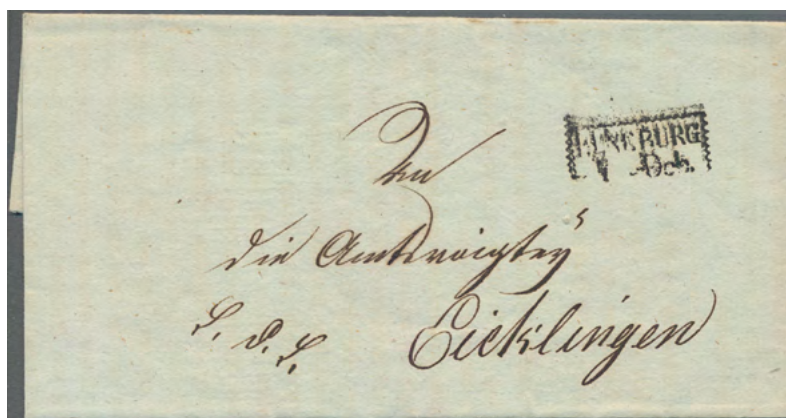 LÜNEBURG
An
die Amtsvoigtey
Eicklingen